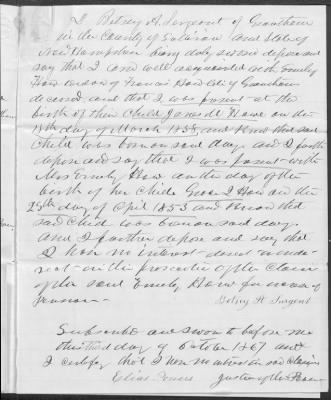 I Betsey A. Sargent of Grantham
in the County of Sullivan and State of
New Hampshire being duly sworn depose and
say that I am well acquainted with Emily
How widow of Francis How late of Grantham
deceased, and that I was present at the
birth of their Child James H Howe on the
day of March 1858, and know that said
Child was born on said day and I further
depose and say that I was present with
Mrs Emily How on the day of the
birth of her Child I How on the
15th day of April 1853 and know that
said Child was born on said day
and I further depose and say that
I have no interest direct or indi-
rect in the prosecution of the claim
of the said Emily How for increase of
pension
Betsey A Sargent
Subscribed and sworn to before me
this third day of October 1867 and
I certify that I have no interest in said claim
Elias Powers Justice of the Peace